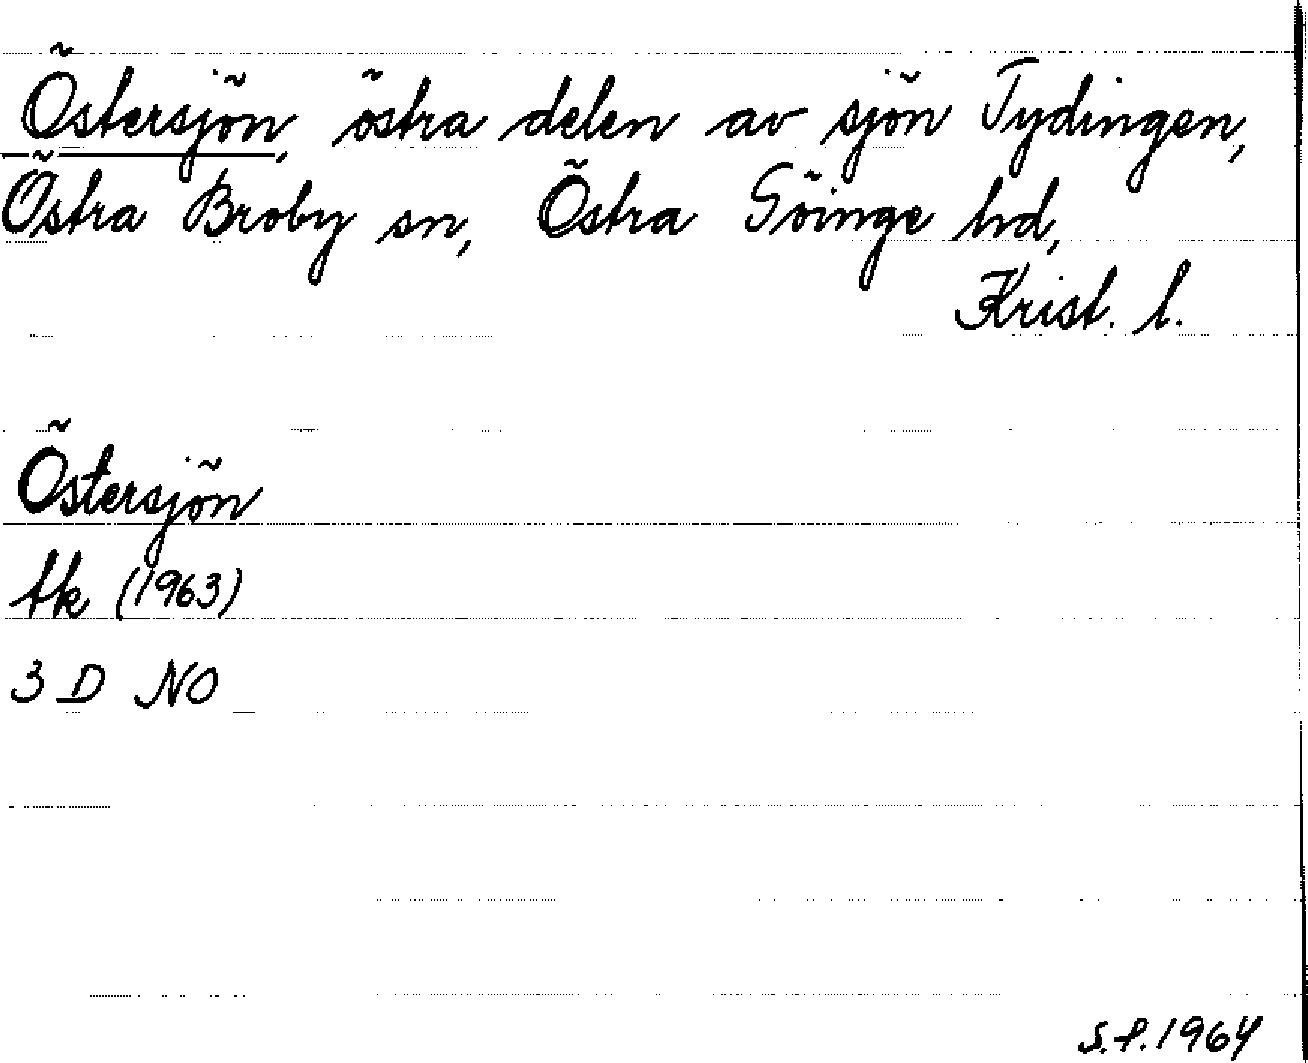 Östersjön, östra delen av sjön Tydingen,
Östra Broby sn, Östra Göinge hd,
Krist. l.
Östersjön
tk (1963)
3 D NO
S.P. 1964